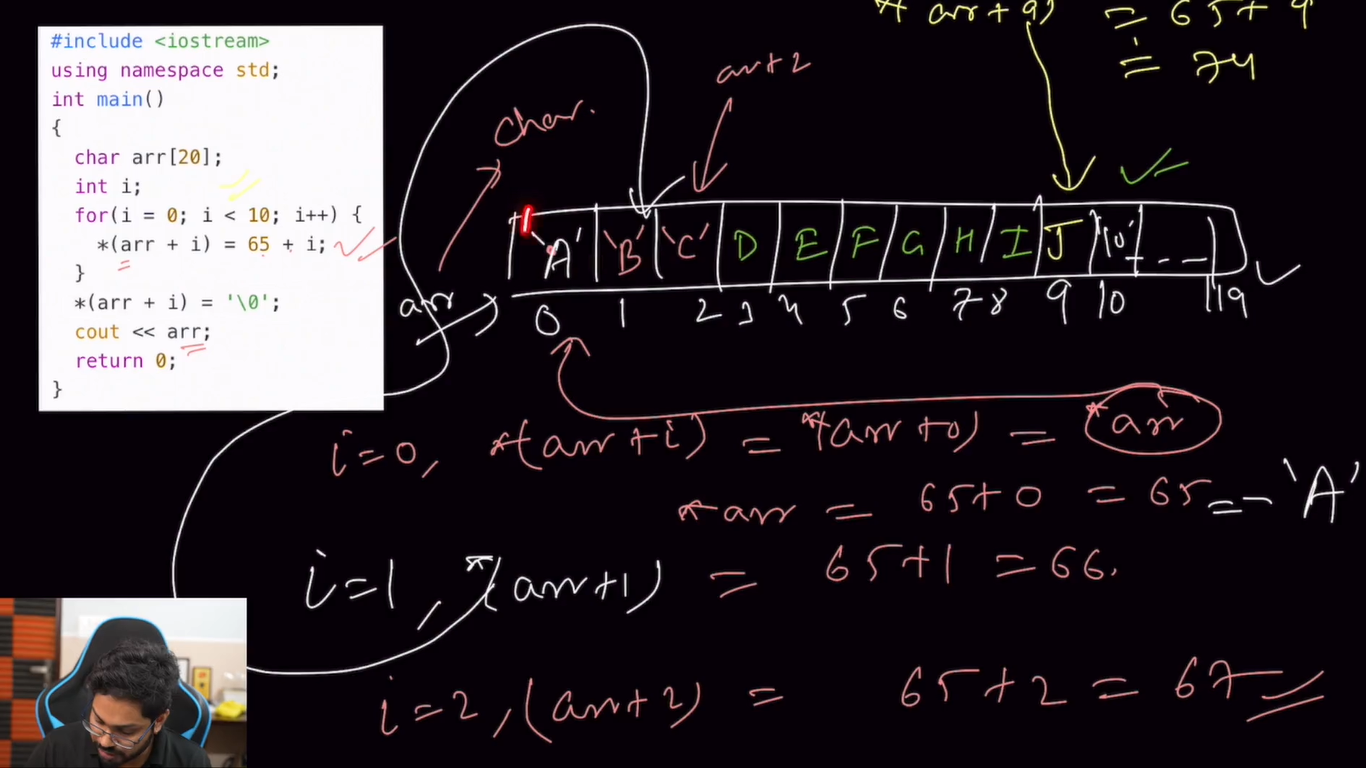 #include <iostream>
using namespace std;
int main()
{
char arr[20];
int i;
for(i = 0; i < 10; i++) {
*(arr + i) = 65 + i;
}
*(arr + i) = '\0';
cout << arr;
return 0;
}
*(arr + 9) = 65 + 9
= 74
arr+2
char.
arr
'A' 'B' 'C' D E F G H I J '\0' - - -
0 1 2 3 4 5 6 7 8 9 10 19
i=0, *(arr + i) = *(arr + 0) = *arr
*arr = 65+0 = 65 == 'A'
i=1, *(arr+1) = 65+1 = 66.
i=2, (arr+2) = 65+2 = 67